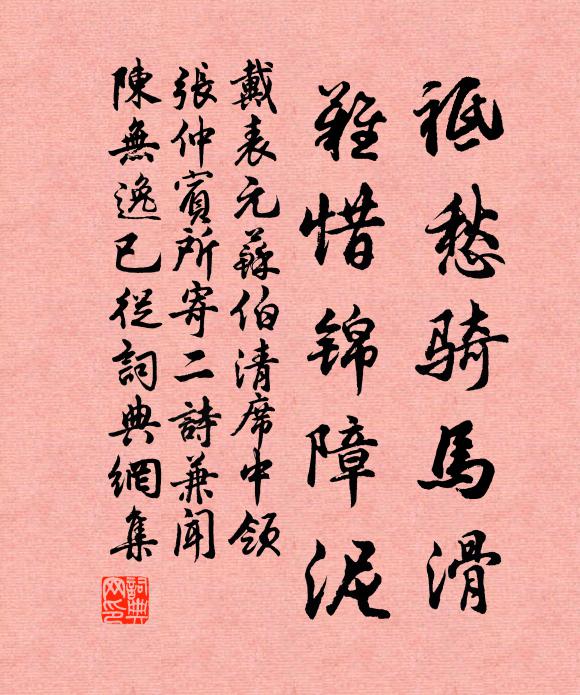 祗愁騎馬滑
難惜錦障泥
戴表元蘇伯清席中領
張仲賓所寄二詩兼聞
陳無逸已從詞典網集
詞典
网印